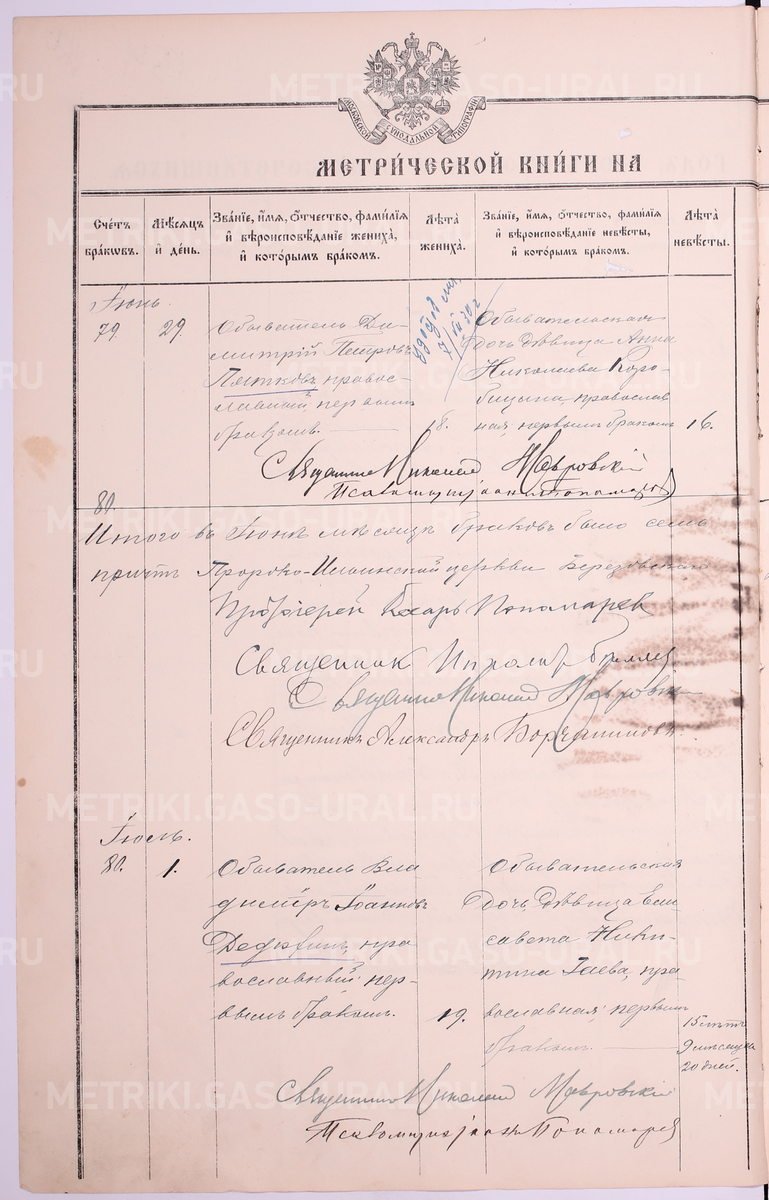 МОСКОВСКОЙ СѴНОДАЛЬНОЙ ТИПОГРАФІИ
МЕТРИ́ЧЕСКОЙ КНИ́ГИ НА
Сче́тъ бра́ковъ.
Мѣ́сяцъ и҆ де́нь.
Зва́ніе, и҆́мя, ѻ҆́тчество, фами́лія
и҆ вѣроисповѣ́даніе жениха̀,
и҆ кото́рымъ бра́комъ.
Лѣ́та жениха̀.
Зва́ніе, и҆́мя, ѻ҆́тчество, фами́лія
и҆ вѣроисповѣ́даніе невѣ́сты,
и҆ кото́рымъ бра́комъ.
Лѣ́та невѣ́сты.
Іюнь.
79 29
Обыватель Ди-
митрій Петровъ
Пятковъ, правос-
лавный, первымъ
бракомъ.
18.
Обывательская
дочь дѣвица Анна
Николаева Коро-
бицына православ
ная, первымъ бракомъ
16.
Священникъ Николай Мавровскій
Псаломщикъ Іоаннъ Пономаревъ
80.
Итого въ Іюнѣ мѣсяцѣ браковъ было семь
причтъ Пророко-Ильинской церкви Березовскаго
Протоіерей Пономарев
Священник
Священникъ Николай Мавровскій
Священникъ Александръ
Іюль.
80. 1.
Обыватель Вла
димиръ Іоанновъ
Дедюхинъ, пра
вославный, пер-
вымъ бракомъ.
19.
Обывательская
дочь, дѣвица Ели
савета Ники-
тина Гаева, пра-
вославная, первымъ
бракомъ.
15 лѣтъ
9 мѣсяцевъ
20 дней.
Священникъ Николай Мавровскій
Псаломщикъ Іоаннъ Пономаревъ
METRIKI.GASO-URAL.RU